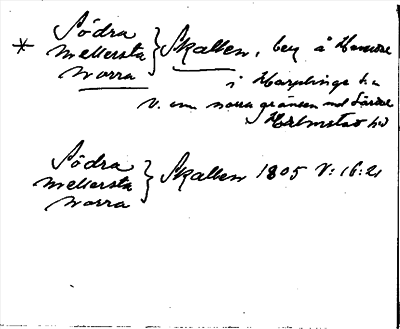 Södra
* Mellersta } Skallen, bey å Hamre
Norra
i Harplinge hd
V. om norra gränsen mot
Halmstad hd
Södra
Mellersta } Skallen 1805 V:16:21
Norra